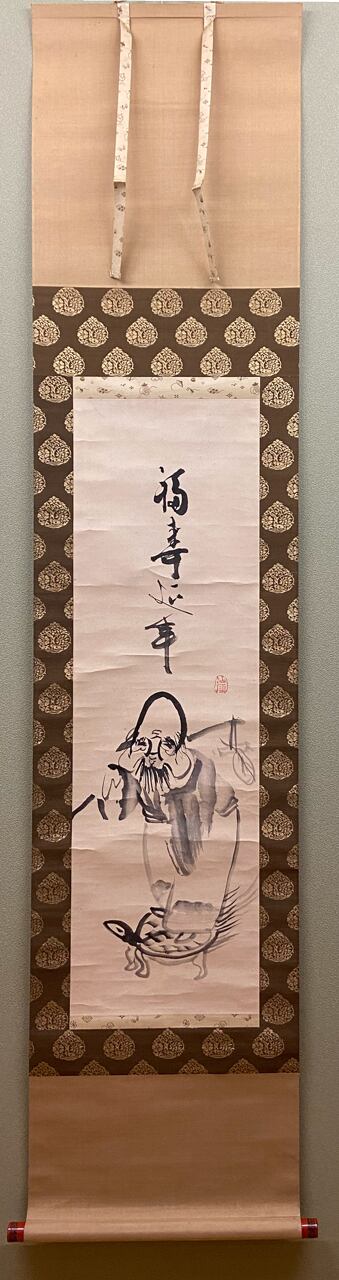 福寿延年